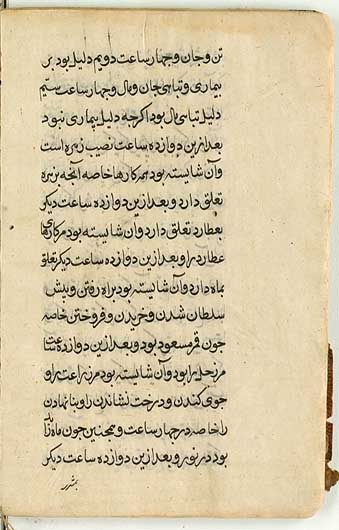 تن و جان و چهار ساعت دویم دلیل بود بر
بیماری و تباهی جان و مال و چهار ساعت سیم
دلیل تباهی مال بود اکرچه دلیل بیماری نبود
بعد ازین دوازده ساعت نصیب زهره است
و آن شایسته بود همه کارها خاصه آنچه بزهره
تعلق دارد و بعد ازین دوازده ساعت دیکر
بعطارد تعلق دارد و آن شایسته بود مر کارهای
عطارد را و بعد ازین دوازده ساعت دیکر تعلق
بماه دارد و آن شایسته بود براه رفتن و پیش
سلطان شدن و خریدن و فروختن خاصه
چون قمر مسعود بود و بعد ازین دوازده ساعت
مر زحل را بود و آن شایسته بود مر زراعت را و
جوی کندن و درخت نشاندن را و بنا نهادن
را خاصه در چهار ساعت و همچنین چون ماه زاید
بود در نور و بعد ازین دوازده ساعت دیکر